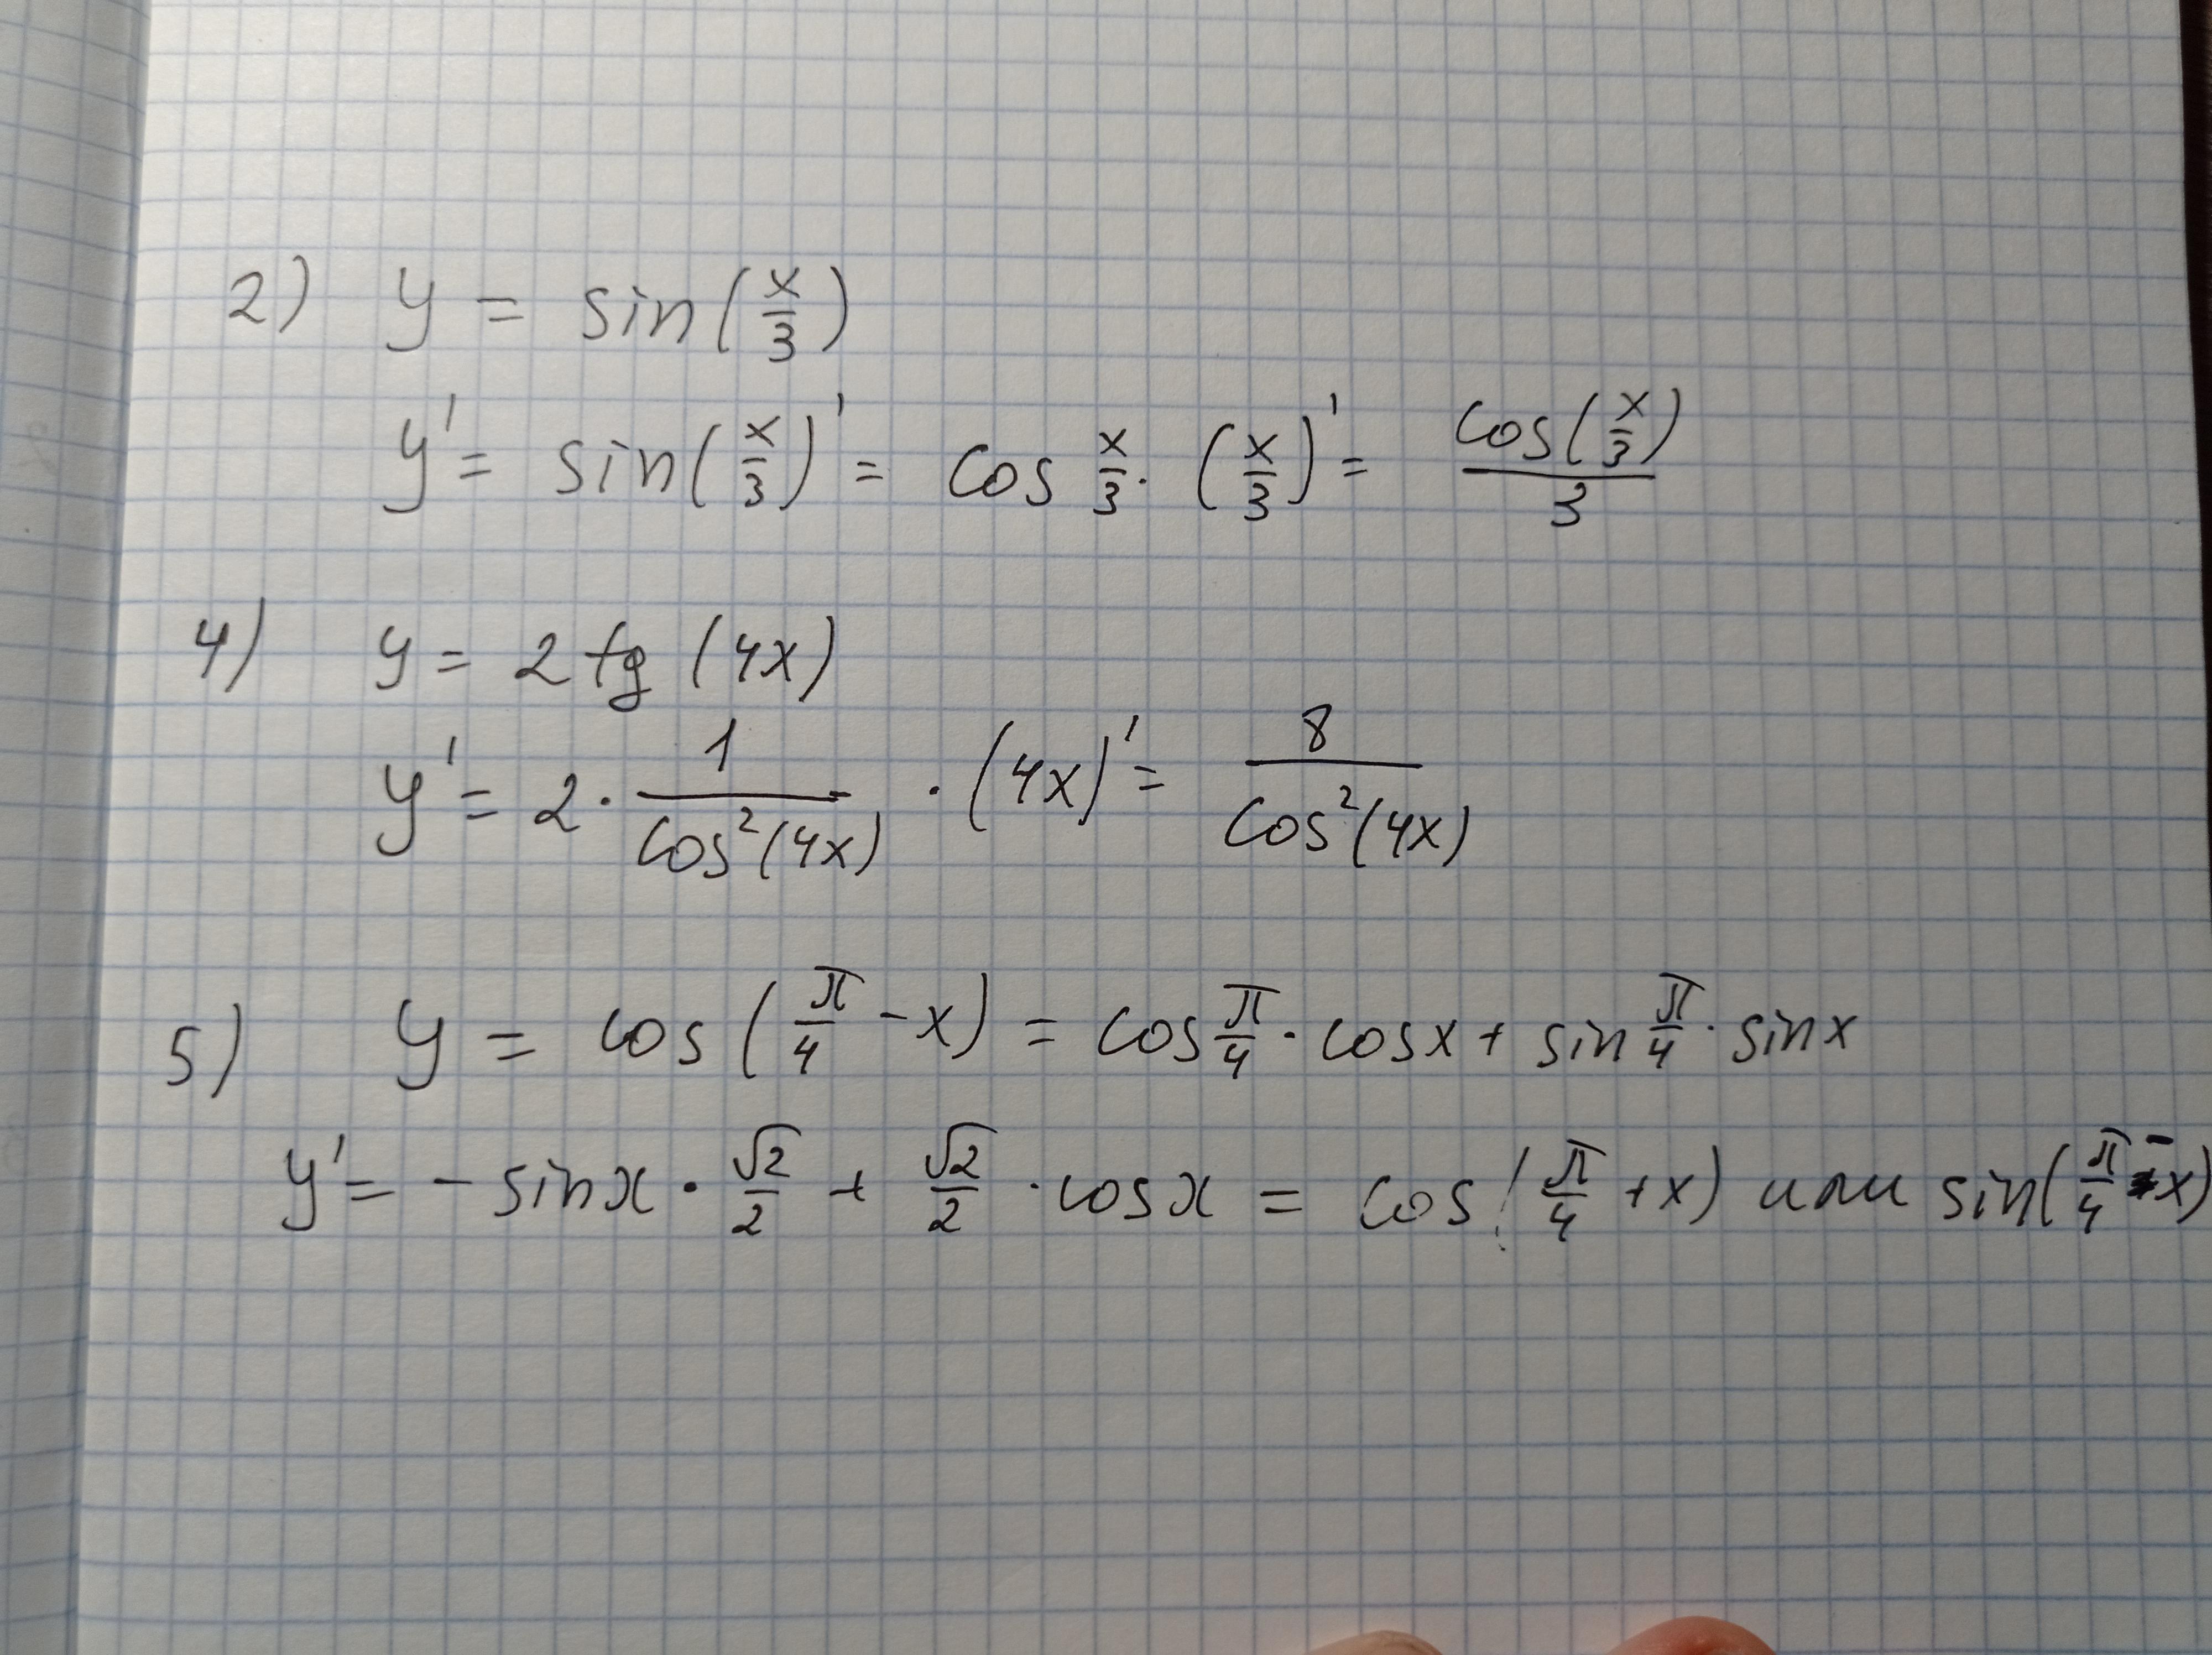 2) y = sin(x/3)
y' = sin(x/3)' = cos x/3 · (x/3)' = cos(x/3)/3
4) y = 2 tg (4x)
y' = 2 · 1/cos²(4x) · (4x)' = 8/cos²(4x)
5) y = cos(π/4 - x) = cos π/4 · cosx + sin π/4 · sinx
y' = - sinx · √2/2 + √2/2 · cosx = cos(π/4 + x) или sin(π/4 - x)